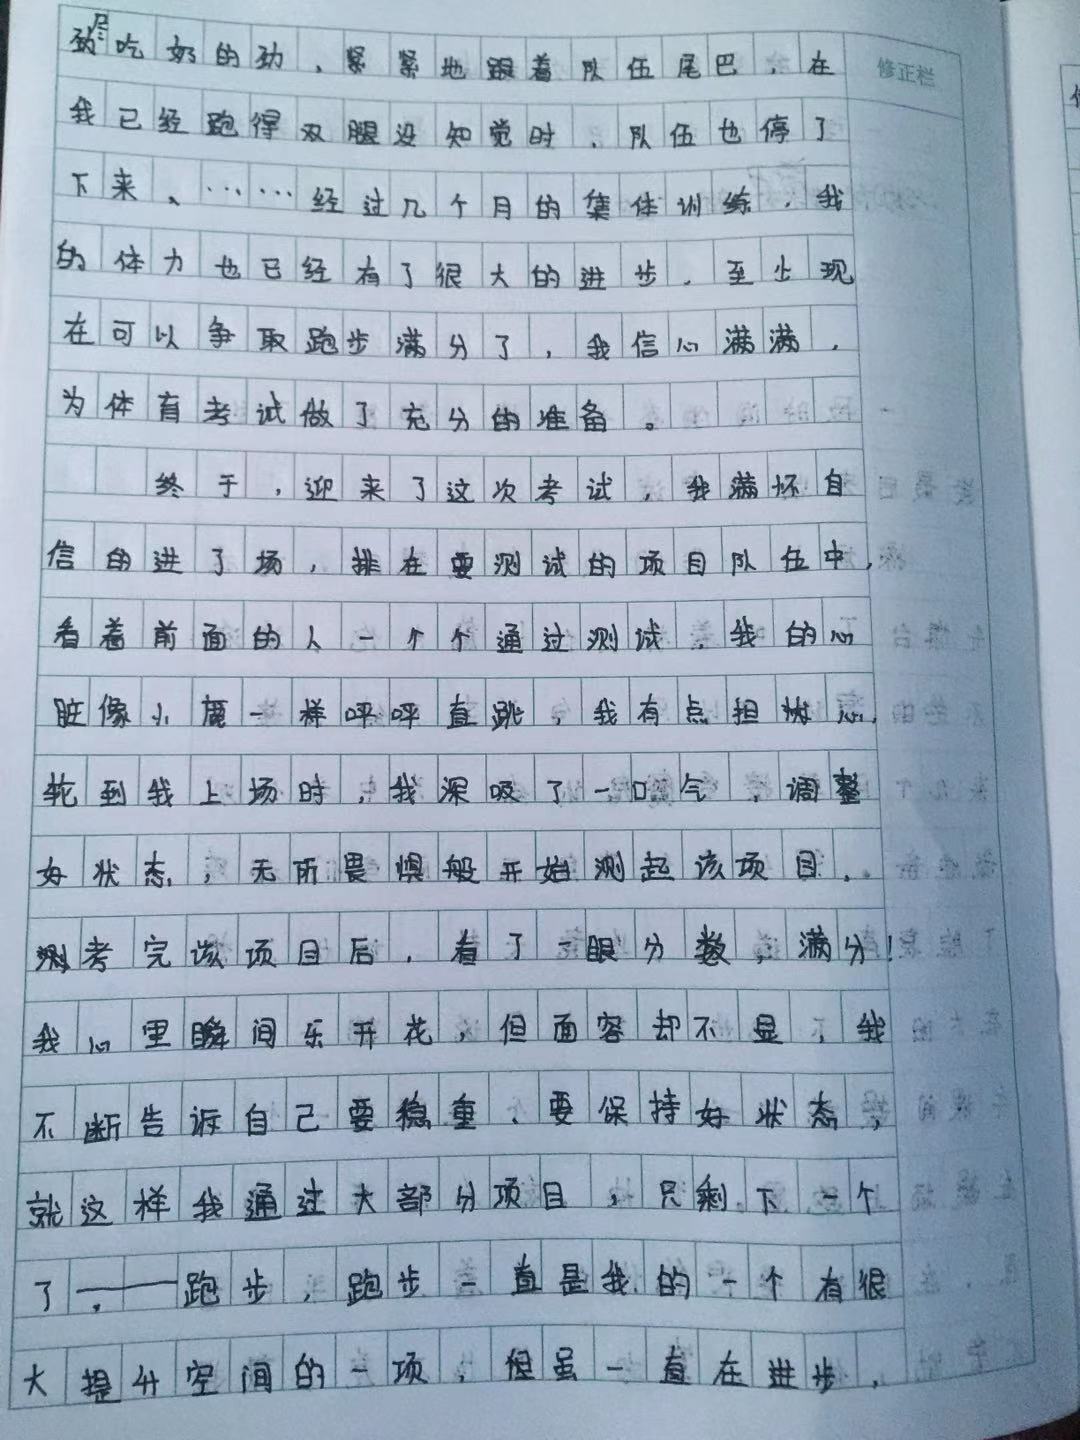 吃奶的劲，紧紧地跟着队伍尾巴，在
修正栏
我已经跑得双腿没知觉时，队伍也停了
下来、……经过几个月的集体训练，我
的体力也已经有了很大的进步，至少现
在可以争取跑步满分了，我信心满满，
为体育考试做了充分的准备。
终于，迎来了这次考试，我满怀自
信的进了场，排在要测试的项目队伍中，
看着前面的人一个个通过测试，我的心
脏像小鹿一样呯呯直跳，我有点担心，
轮到我上场时，我深吸了一口气，调整
好状态，无所畏惧般开始测起该项目，。
测考完该项目后，看了一眼分数，满分！
我心里瞬间乐开花，但面容却不显，我
不断告诉自己要稳重、要保持好状态，
就这样我通过大部分项目，只剩下一个
了，——跑步，跑步一直是我的一个有很
大提升空间的一项，但虽一直在进步，